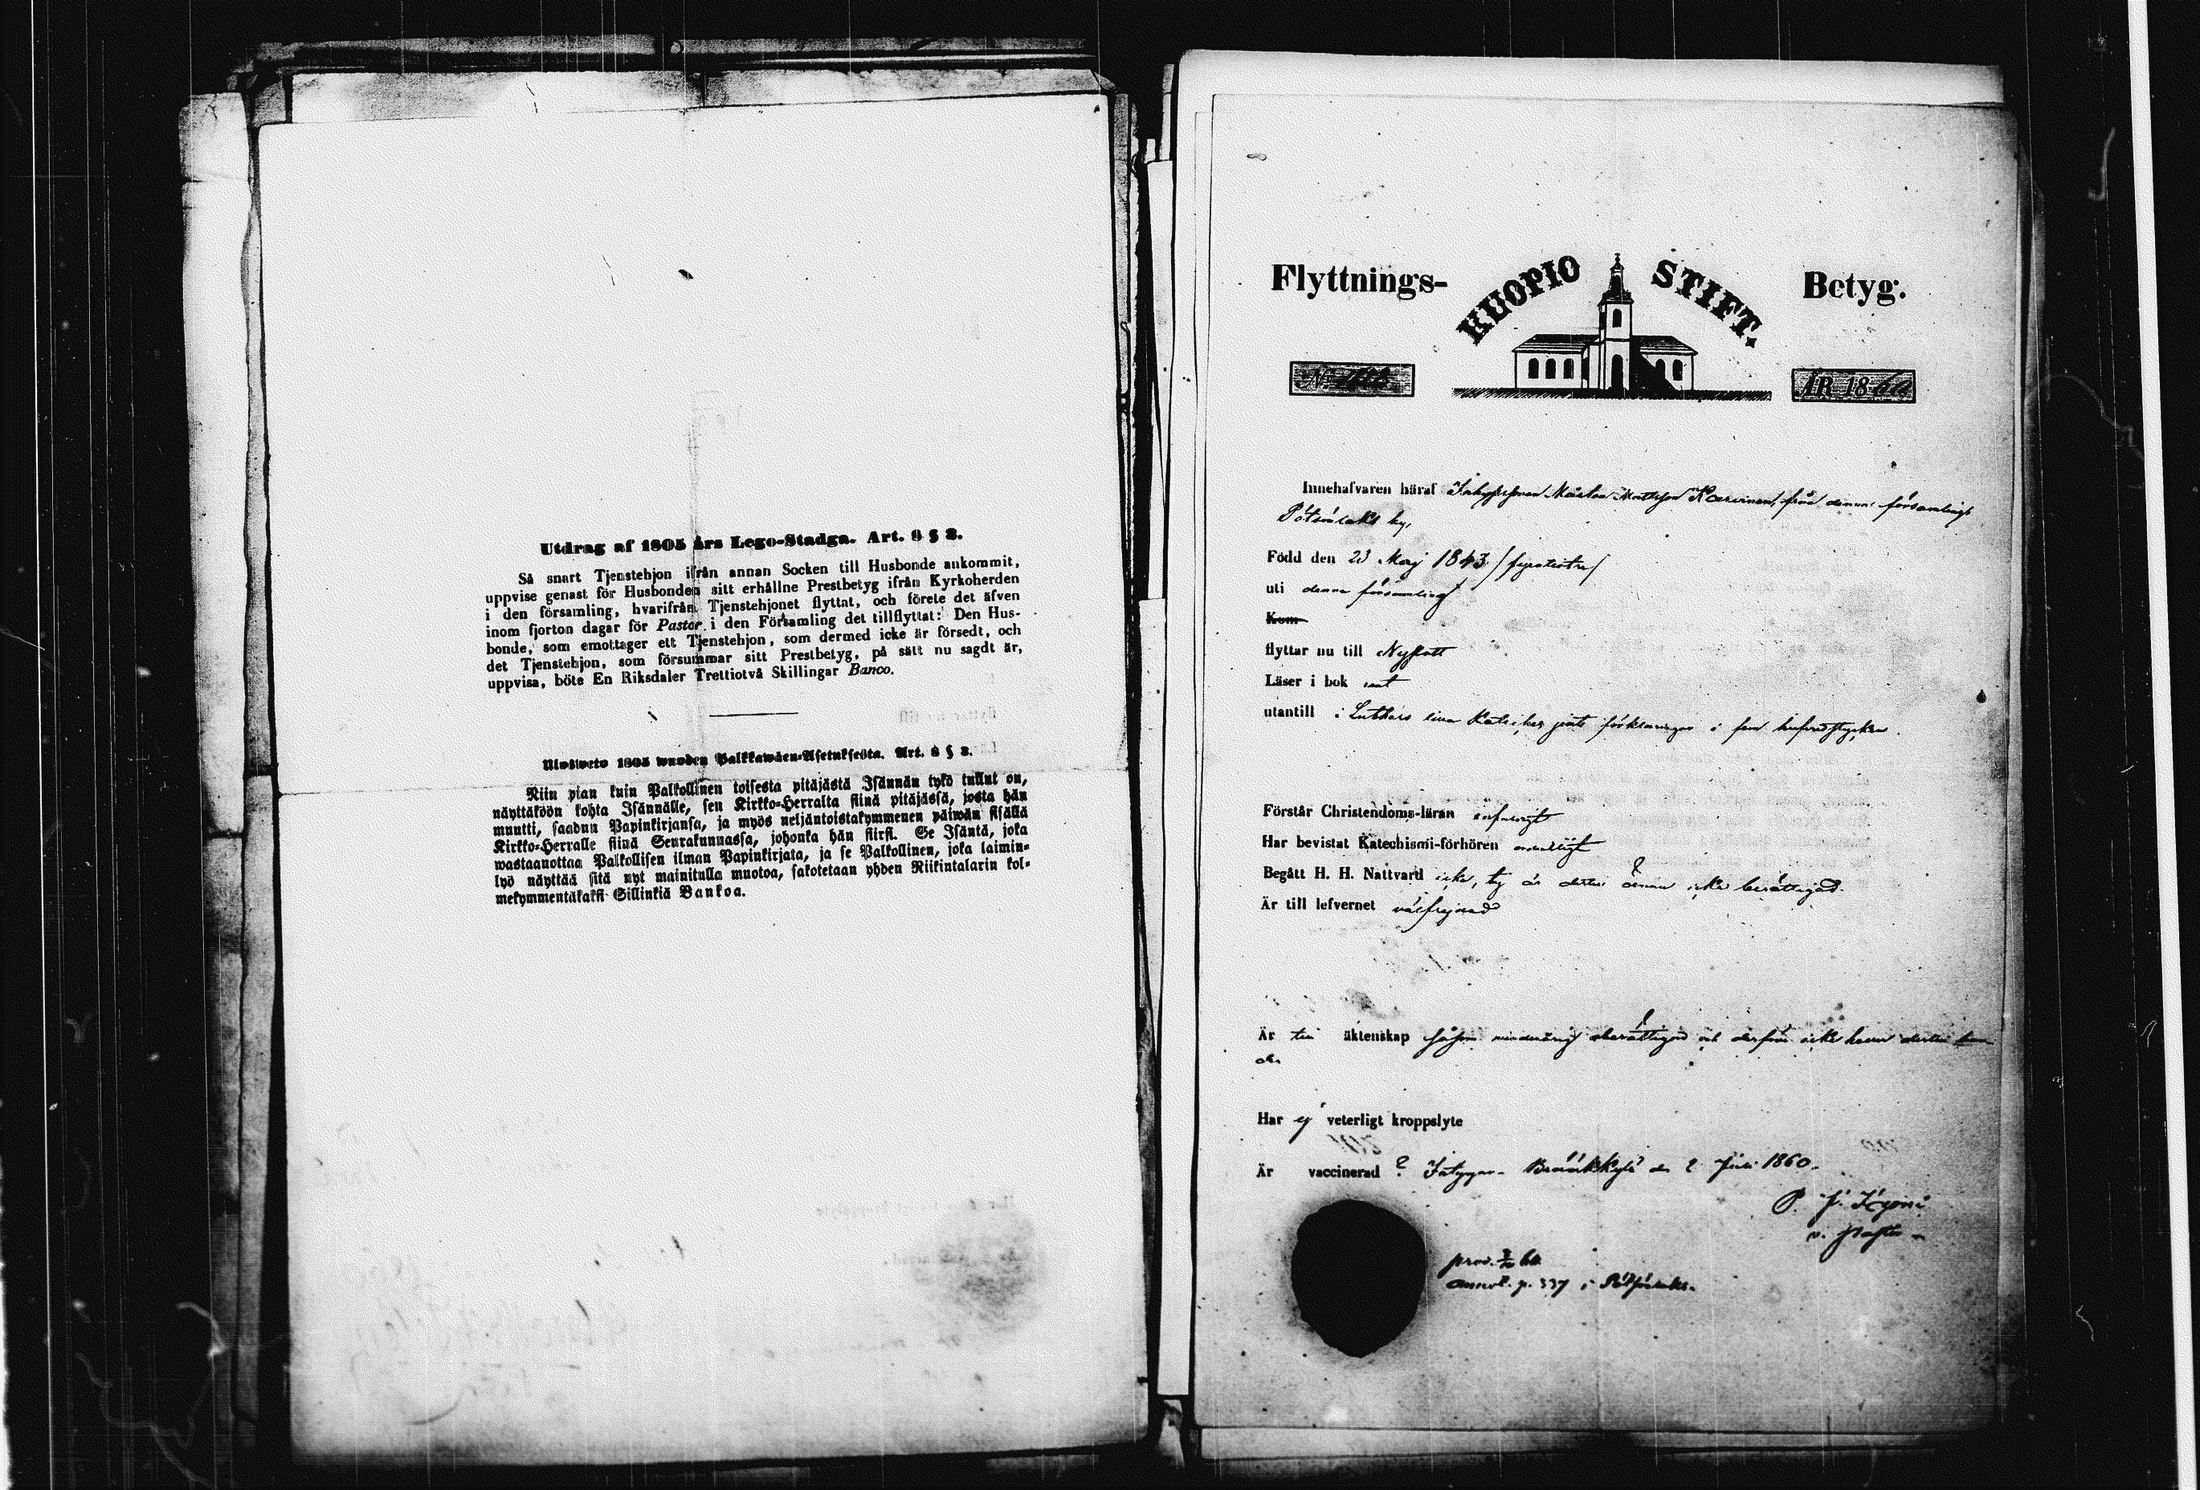 Utdrag af 1805 års Lego-Stadga. Art. 8 § 8.
Så snart Tjenstehjon ifrån annan Socken till Husbonde ankommit,
uppvise genast för Husbonden sitt erhållne Prestbetyg ifrån Kyrkoherden
i den församling, hvarifrån Tjenstehjonet flyttat, och förete det äfven
inom fjorton dagar för Pastor i den Församling det tillflyttat: Den Hus-
bonde, som emottager ett Tjenstehjon, som dermed icke är försedt, och
det Tjenstehjon, som försummar sitt Prestbetyg, på sätt nu sagdt är,
uppvisa, böte En Riksdaler Trettiotvå Skillingar Banco.
Ulosweto 1805 wuoden Palkkawäen-Asetuksesta. Art. 8 § 8.
Niin pian kuin Palkollinen toisesta pitäjästä Isännän tykö tullut on,
näyttäköön kohta Isännälle, sen Kirkko-Herralta siinä pitäjässä, josta hän
muutti, saadun Papinkirjansa, ja myös neljäntoistakymmenen päiwän sisällä
Kirkko-Herralle siinä Seurakunnassa, johonka hän siirsi. Se Isäntä, joka
wastaanottaa Palkollisen ilman Papinkirjata, ja se Palkollinen, joka laimin-
lyö näyttää sitä nyt mainitulla muotoa, sakotetaan yhden Riikintalarin kol-
mekymmentäkaksi Sillinkiä Bankoa.
Flyttnings- KUOPIO STIFT. Betyg.
N:o ÅR 1860
Innehafvaren häraf Mattsson från denna församlings
by,
Född den 23 Maj 1843
uti denna församling
Kom
flyttar nu till Nyslott
Läser i bok
utantill i Luthers lilla Kateches jemte förklaringar i fem hufvudstycken.
Förstår Christendoms-läran enfaldigt
Har bevistat Katechismi-förhören ordentligt
Begått H. H. Nattvard icke, ty är dertill ännu icke berättigad.
Är till lefvernet välfrejdad
Är till äktenskap såsom minderårig oberättigad och derföre icke heller dertill
Har ej veterligt kroppslyte
Är vaccinerad ? Intygar Bräkylä den 2 Juli 1860.
P. J. Kyrme
v. Pastor
prod.
annot. p. 337 i